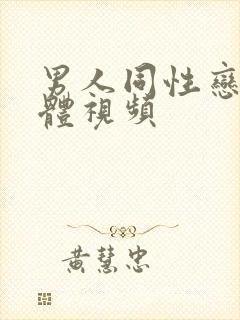 男人同性戀
體視頻
黃慧忠